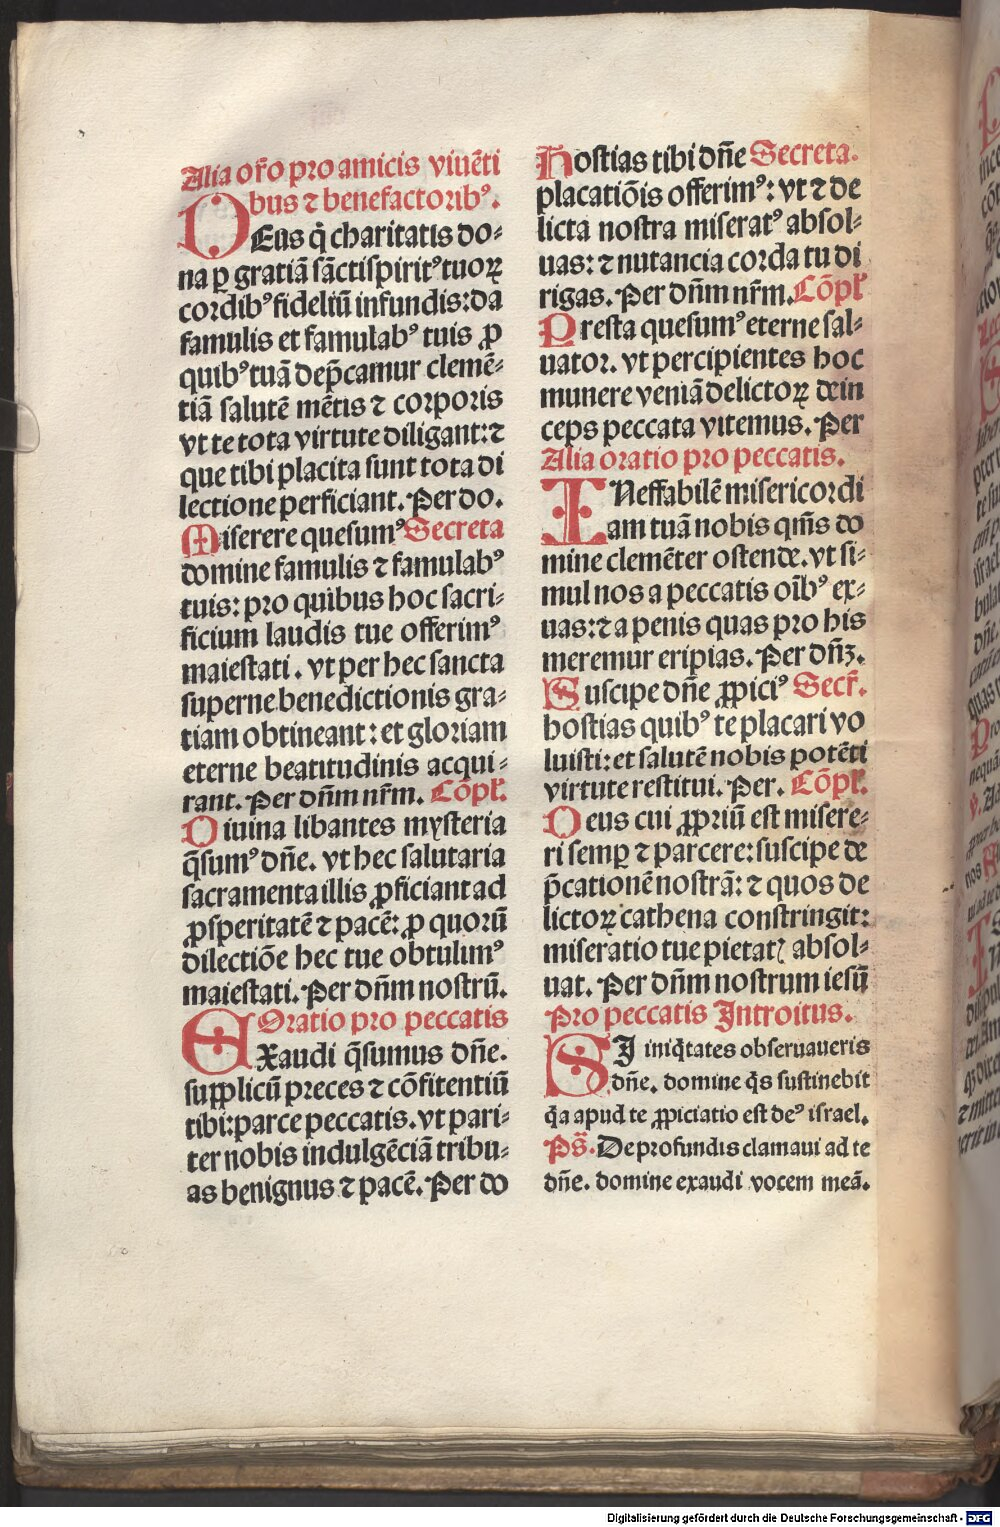 Alia oro pro amicis viuēti
bus ⁊ benefactoribꝰ.
DEus q̄ charitatis do-
na ꝑ gratiā sāctispiritꝰ tuoꝝ
cordibꝰ fideliū infundis: da
famulis et famulabꝰ tuis ꝓ
quibꝰ tuā dep̄camur clemē-
tiā salutē mētis ⁊ corporis
vt te tota virtute diligant: ⁊
que tibi placita sunt tota di
lectione perficiant. Per do.
Miserere quesumꝰ Secreta
domine famulis ⁊ famulabꝰ
tuis: pro quibus hoc sacri-
ficium laudis tue offerimꝰ
maiestati. vt per hec sancta
superne benedictionis gra-
tiam obtineant: et gloriam
eterne beatitudinis acqui-
rant. Per dn̄m nr̄m. Cōpl̄.
Diuina libantes mysteria
q̄sumꝰ dn̄e. vt hec salutaria
sacramenta illis ꝓficiant ad
ꝓsperitatē ⁊ pacē: ꝓ quorū
dilectiōe hec tue obtulimꝰ
maiestati. Per dn̄m nostrū.
Oratio pro peccatis
EXaudi q̄sumus dn̄e.
supplicū preces ⁊ cōfitentiū
tibi: parce peccatis. vt pari-
ter nobis indulgēciā tribu-
as benignus ⁊ pacē. Per do
Hostias tibi dn̄e Secreta.
placatiōis offerimꝰ: vt ⁊ de
licta nostra miseratꝰ absol-
uas: ⁊ nutancia corda tu di
rigas. Per dn̄m nr̄m. Cōpl̄
Presta quesumꝰ eterne sal-
uator. vt percipientes hoc
munere veniā delictoꝝ dein
ceps peccata vitemus. Per
Alia oratio pro peccatis.
INeffabilē misericordi
am tuā nobis qm̄s do
mine clemēter ostende. vt si-
mul nos a peccatis oībꝰ ex-
uas: ⁊ a penis quas pro his
meremur eripias. Per dn̄ꝫ.
Suscipe dn̄e ꝓpiciꝰ Secr̄.
hostias quibꝰ te placari vo
luisti: et salutē nobis potēti
virtute restitui. Per. Cōpl̄.
Deus cui ꝓpriū est misere-
ri semꝑ ⁊ parcere: suscipe de
p̄cationē nostrā: ⁊ quos de
lictoꝝ cathena constringit:
miseratio tue pietatꝭ absol-
uat. Per dn̄m nostrum iesū
Pro peccatis Introitus.
SI iniq̄tates obseruaueris
dn̄e. domine q̄s sustinebit
q̄a apud te ꝓpiciatio est deꝰ israel.
Ps̄. De profundis clamaui ad te
dn̄e. domine exaudi vocem meā.
Digitalisierung gefördert durch die Deutsche Forschungsgemeinschaft - DFG